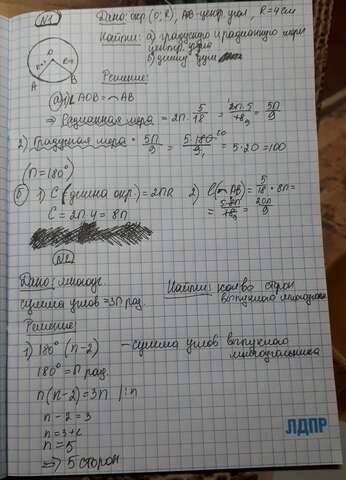 №1
Дано: окр (O; R), AB - центр. угол, R = 4 см
Найти: а) градусную и радианную меры
центр. угла
б) длину дуги
Решение:
O
R
R
A
B
а) 1) ∠AOB = ◡AB
⇒ Радианная мера = 2π · 5/18 = 2π·5/18₉ = 5π/9
2) Градусная мера = 5π/9 = 5·180²⁰/9₁ = 5·20 = 100
(π = 180°)
б) 1) C (длина окр.) = 2πR
2) l(◡AB) = 5/18 · 8π =
C = 2π·4 = 8π
= 5·8π/18₉ = 20π/9
№2
Дано: многоуг.
Найти: кол-во сторон
сумма углов = 3π рад.
выпуклого многоугольника
Решение:
1) 180° (n-2) — сумма углов выпуклого
многоугольника
180° = π рад.
π(n-2) = 3π /:π
n - 2 = 3
n = 3+2
n = 5
⇒ 5 сторон
ЛДПР